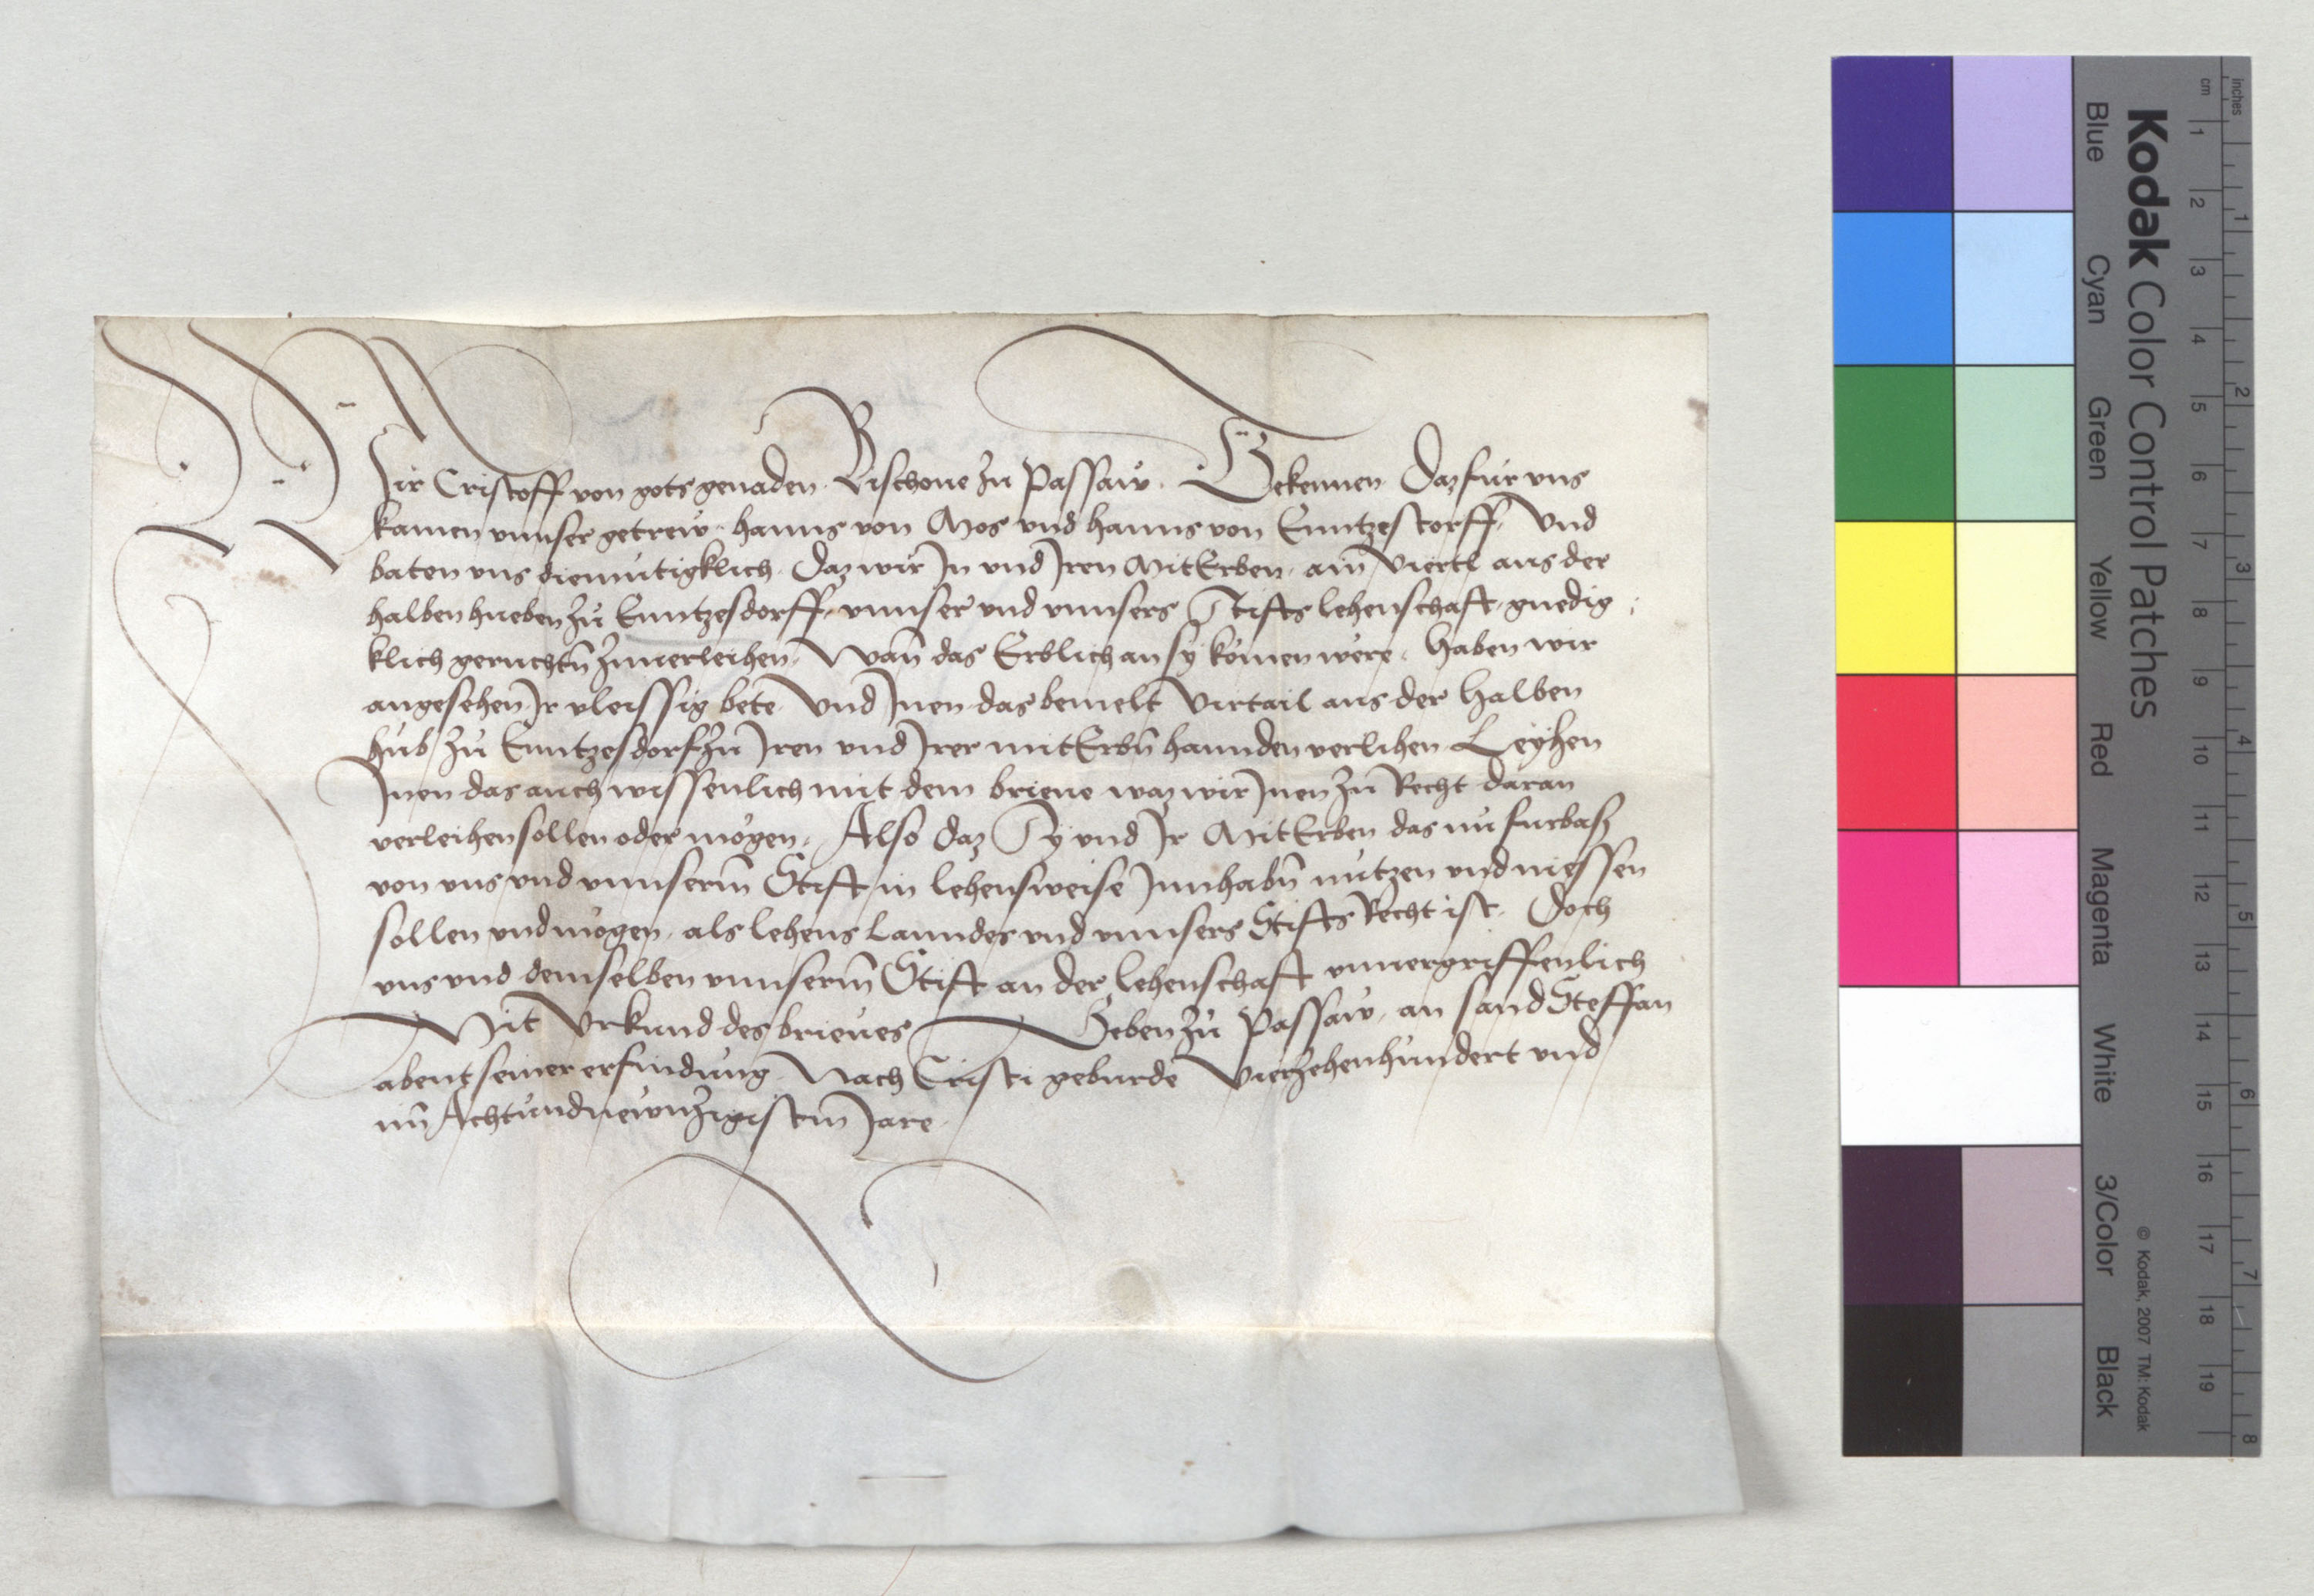 Wir Cristoff von gots genaden Bischoue zu Passaw. Bekennen Daz fur vns
kamen vnnser getrew hanns von Mos vnd hanns von Enntzestorff, Vnd
baten vns diemutigklich. Daz wir In vnd Iren MitErben ain Viertl aus der
halben hueben zu Enntzesdorff vnnser vnd vnnsers Stifts lehenschaft gnedig
klich geruchtn̄ zuuerleihen, Wan̄ das Erblich an sy komen were. Haben wir
angesehen Ir vleissig bete Vnd Inen das bemelt Virtail aus der Halben
hub zu Enntzesdorf zu Iren vnd Irer mitErbn̄ hannden verlihen Leyhen
Inen das auch wissenlich mit dem brieue waz wir Inen zu Recht daran
verleihen sollen oder mogen, Also daz Sy vnd Ir MitErben das nu furbasz
von vns vnd vnnserm̄ Stift in lehensweise Innhabn̄ nutzen vnd niessen
sollen vnd mogen, als lehens Lanndes vnd vnnsers Stifts Recht ist. Doch
vns vnd demselben vnnserm̄ Stift an der lehenschaft vnuergriffenlich
Mit Vrkund des brieues Geben zu Passaw, an sand Steffan
abent seiner erfindung Nach Cristi geburde Vierzehenhundert vnd
im̄ Achtundnewnzigistm̄ Jare.
Kodak Color Control Patches
Blue Cyan Green Yellow Red Magenta White 3/Color Black
© Kodak, 2007 TM: Kodak
cm 1 2 3 4 5 6 7 8 9 10 11 12 13 14 15 16 17 18 19
inches 1 2 3 4 5 6 7 8